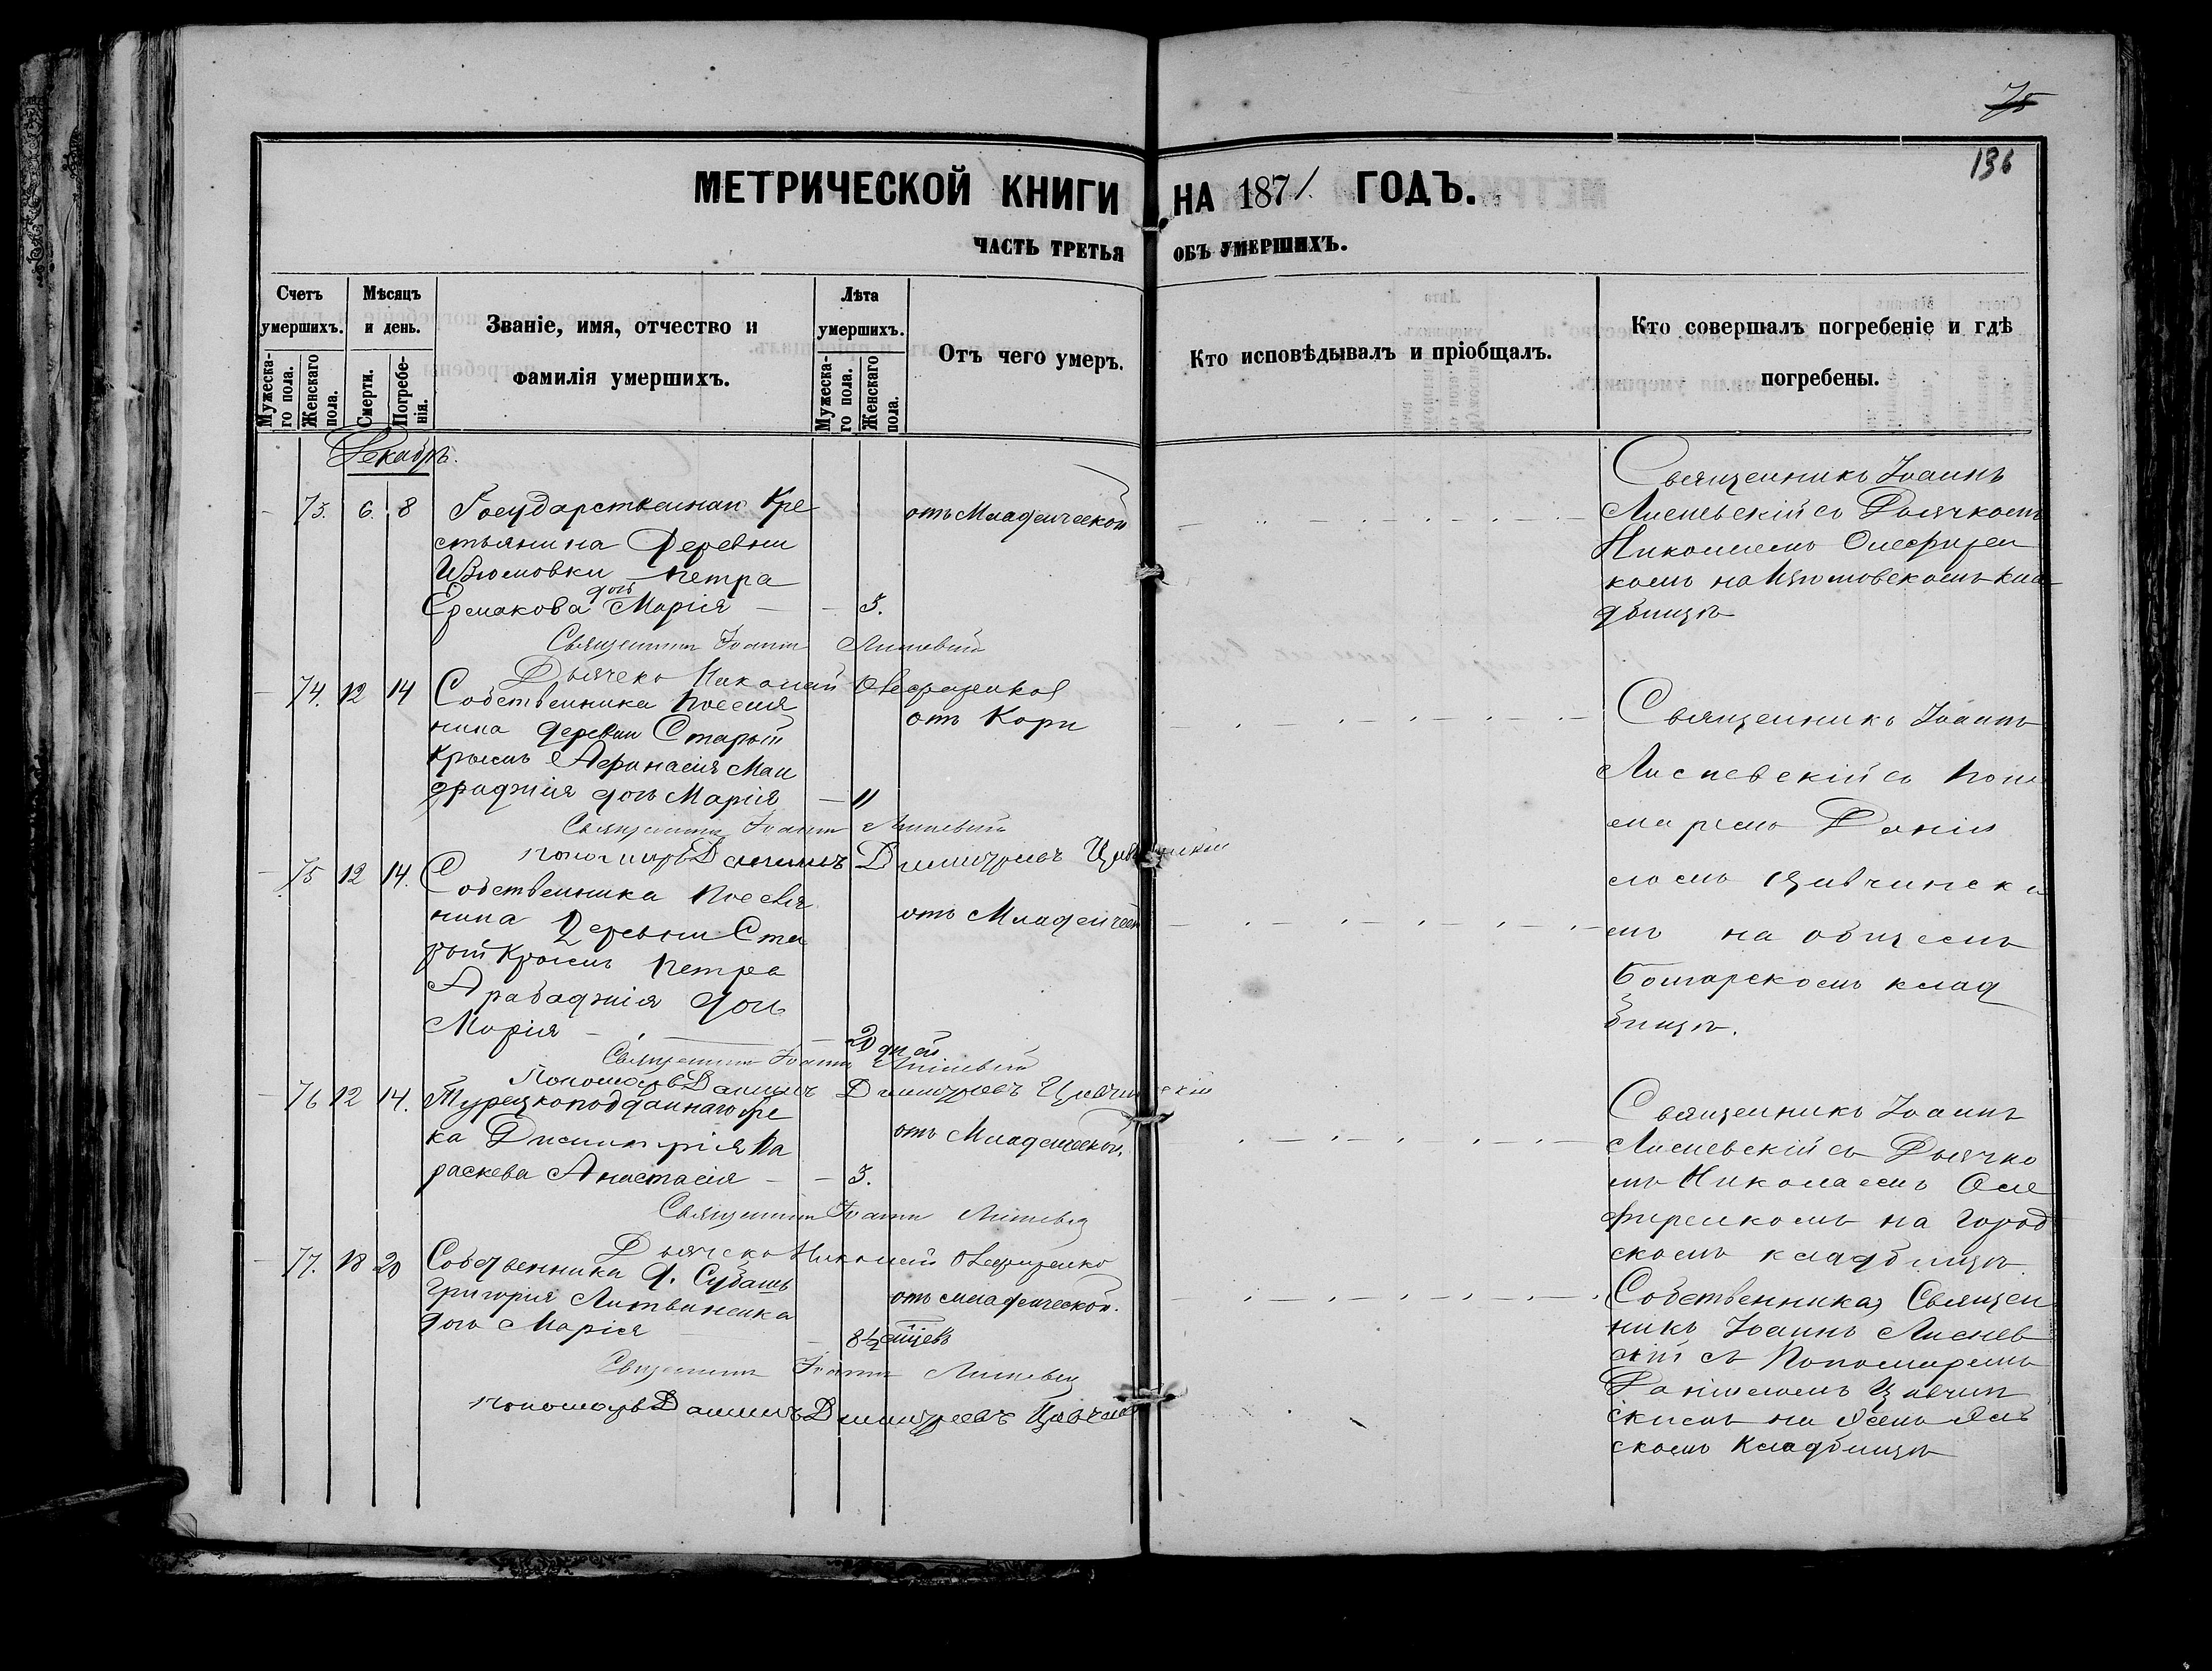 75
136
МЕТРИЧЕСКОЙ КНИГИ НА 1871 ГОДЪ.
ЧАСТЬ ТРЕТЬЯ ОБЪ УМЕРШИХЪ.
Счетъ умершихъ.
Мужеска-го пола.
Женскаго пола.
Мѣсяцъ и день.
Смерти.
Погребе-нія.
Званіе, имя, отчество и
фамилія умершихъ.
Лѣта умершихъ.
Мужеска-го пола.
Женскаго пола.
Отъ чего умеръ.
Кто исповѣдывалъ и пріобщалъ.
Кто совершалъ погребеніе и гдѣ
погребены.
Декабрь.
73. 6. 8 Государственнаго Кре
стьянина Деревни
Изюмовки Петра
Ермакова дочь Марія — 3.
отъ Младенческой
Священникъ Іоаннъ
Лисневскій съ Дьячкомъ
Николаемъ
комъ на Изюмовскомъ кла
дбищѣ
Священникъ Іоаннъ
Дьячекъ Николай
74. 12 14 Собственника Поселя
нина деревни Старый
Крымъ Афанасія Ман
граджія дочь Марія — 11
отъ Кори
Священникъ Іоаннъ
Лисневскій съ Поно
маремъ Даніи
ломъ Цивчински
мъ на общемъ
болгарскомъ клад
бищѣ.
Священникъ Іоаннъ
Пономарь Даниилъ Димитріевъ
75 12 14. Собственника Поселя
нина Деревни Ста
рый Крымъ Петра
Арабаджія дочь
Марія — 20 дней
отъ Младенческ
Священникъ Іоаннъ
Пономарь Даниилъ Димитріевъ
76 12 14. Турецкоподданнаго гре
ка Димитрія Па
раскева Анастасія — 3.
отъ Младенческой
Священникъ Іоаннъ
Лисневскій съ Дьячко
мъ Николаемъ
на город
скомъ кладбищѣ
Священникъ Іоаннъ
Дьячекъ Николай
77. 18 20 Собственника д. Субашъ
Григорія Литвиненка
дочь Марія — 8½ мцевъ
отъ младенческой.
Собственника, Священ
никъ Іоаннъ Лиснев
скій съ Пономаремъ
Даніиломъ Цивчин
скимъ на
скомъ Кладбищѣ
Священникъ Іоаннъ
Пономарь Даниилъ Димитріевъ